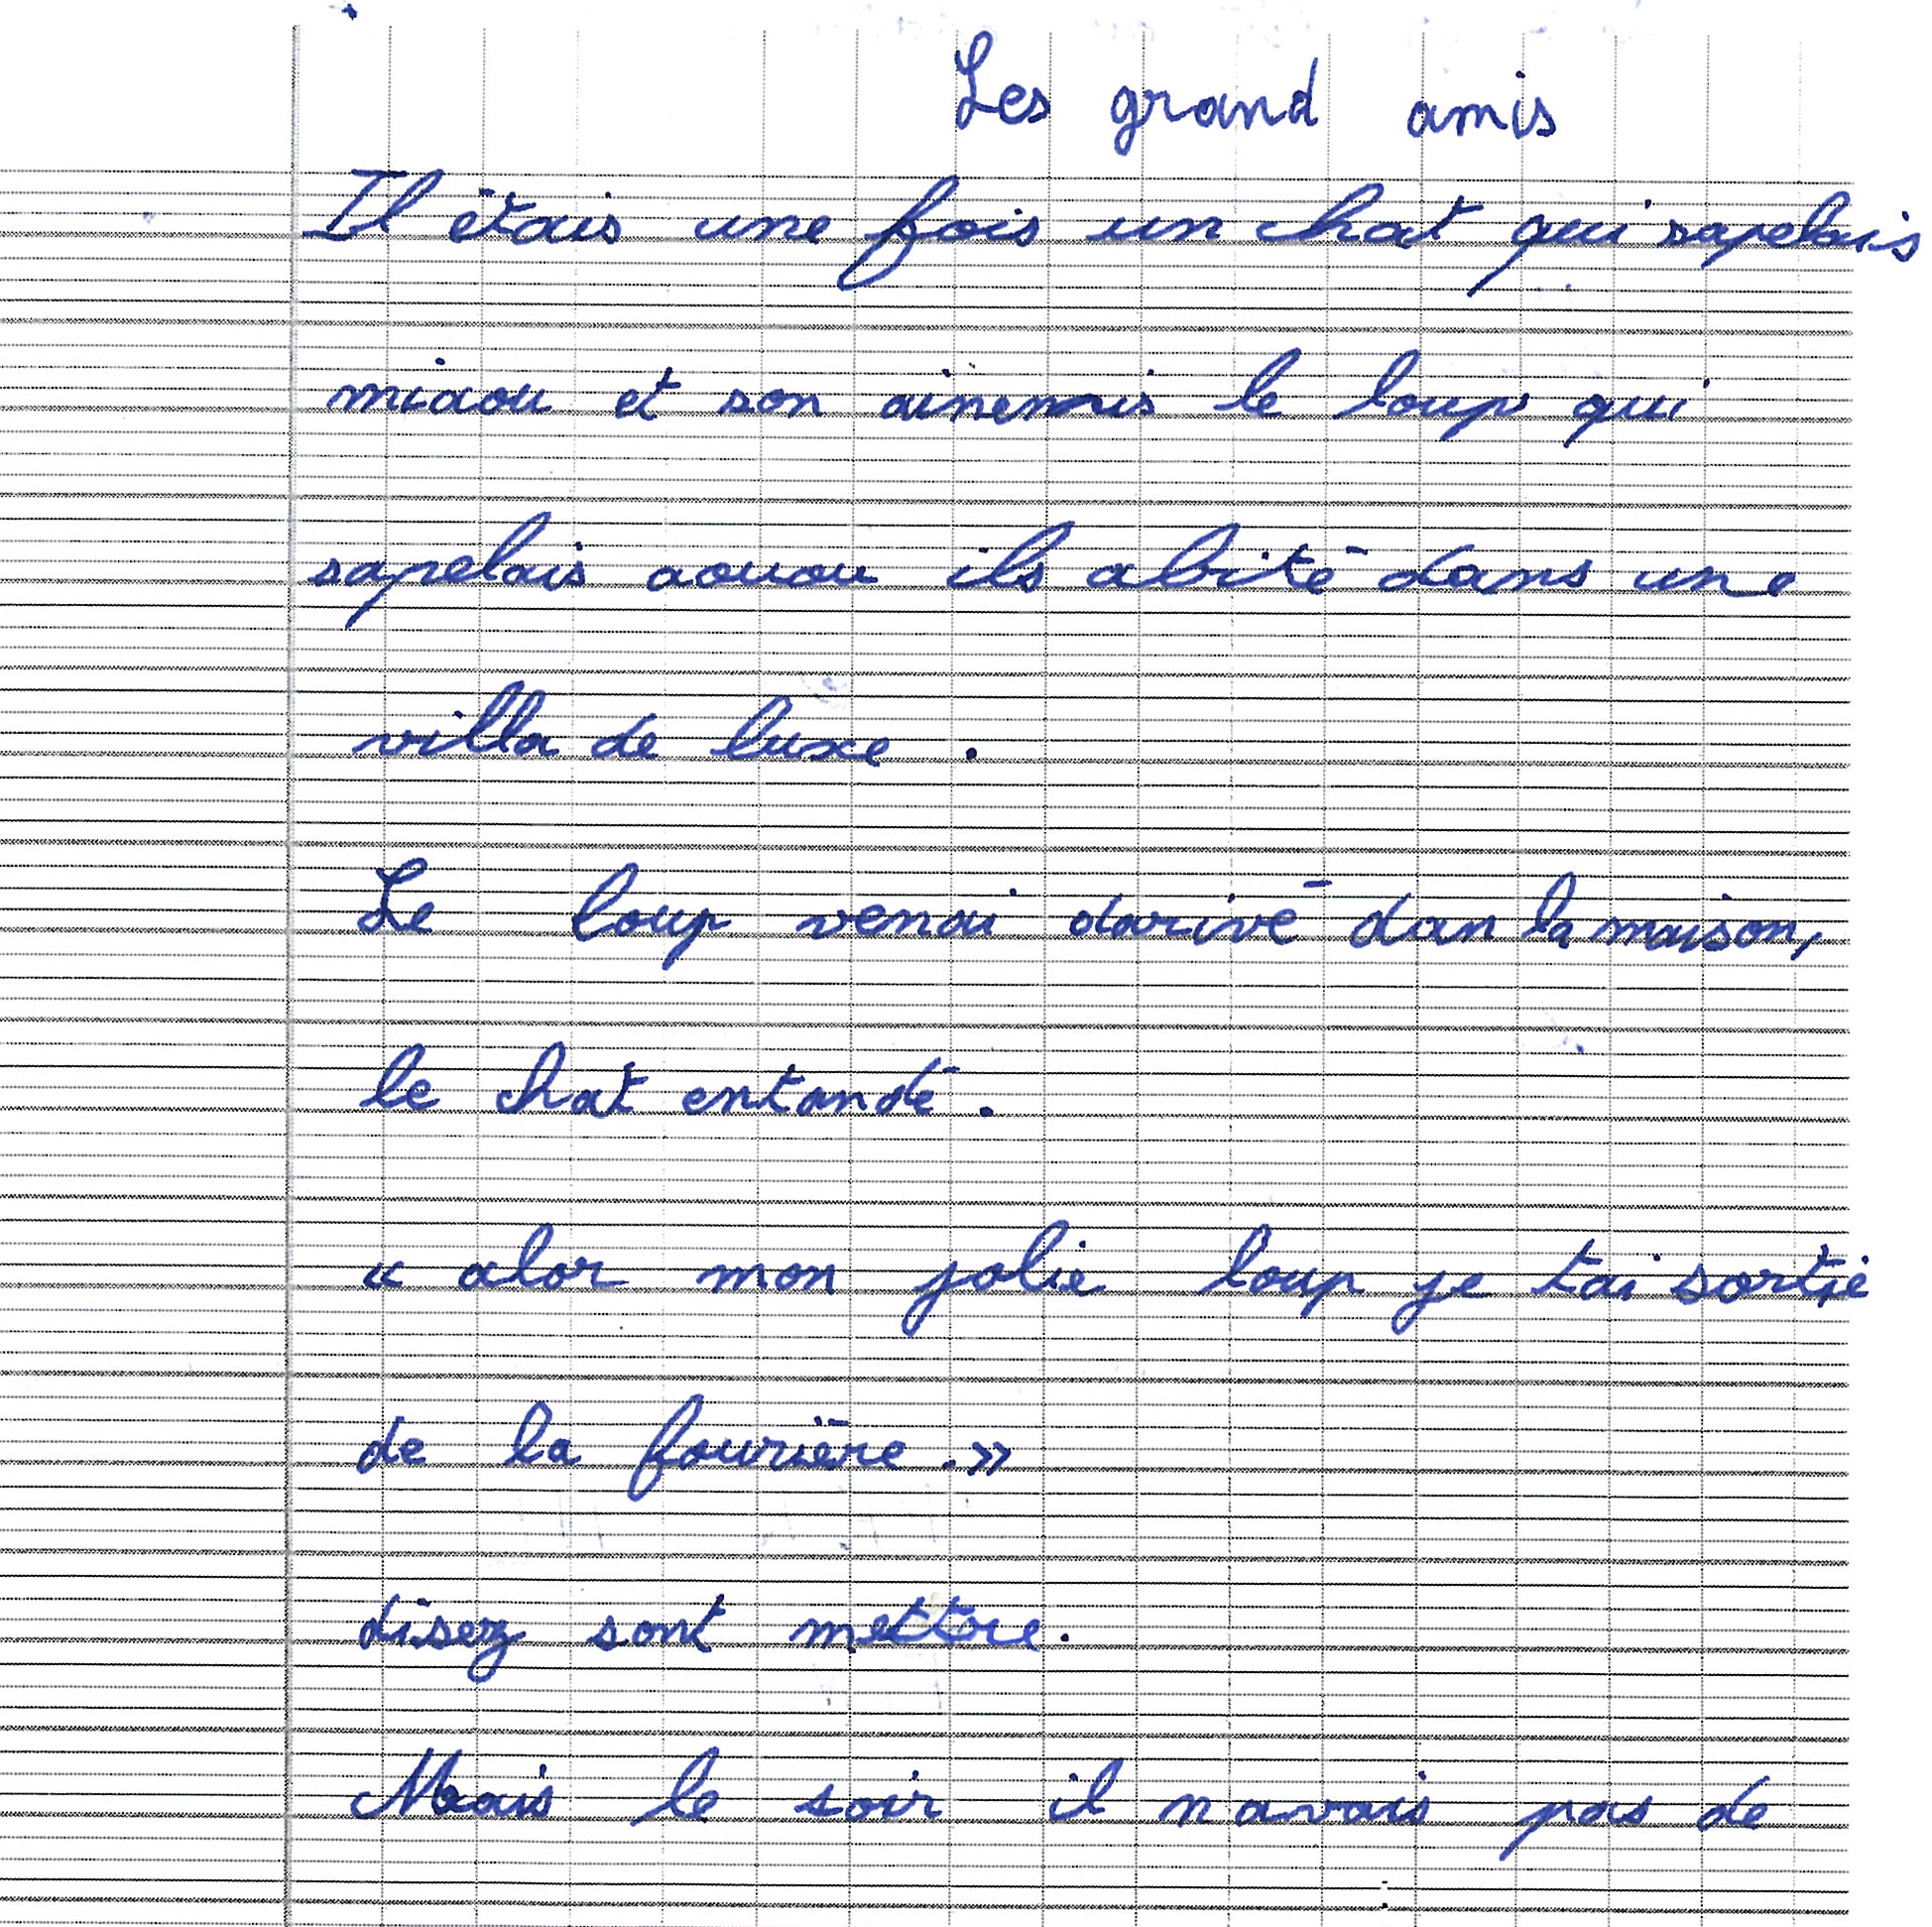 Les grand amis
Il étais une fois un chat qui sapelais
miaou et son ainemis le loup qui
sapelais aouou ils abité dans une
villa de luxe .
Le loup venai darivé dan la maison,
le chat entandé .
« alor mon jolie loup je tai sortie
de la fourière .»
disez sont mettre.
Mais le soir il navais pas de